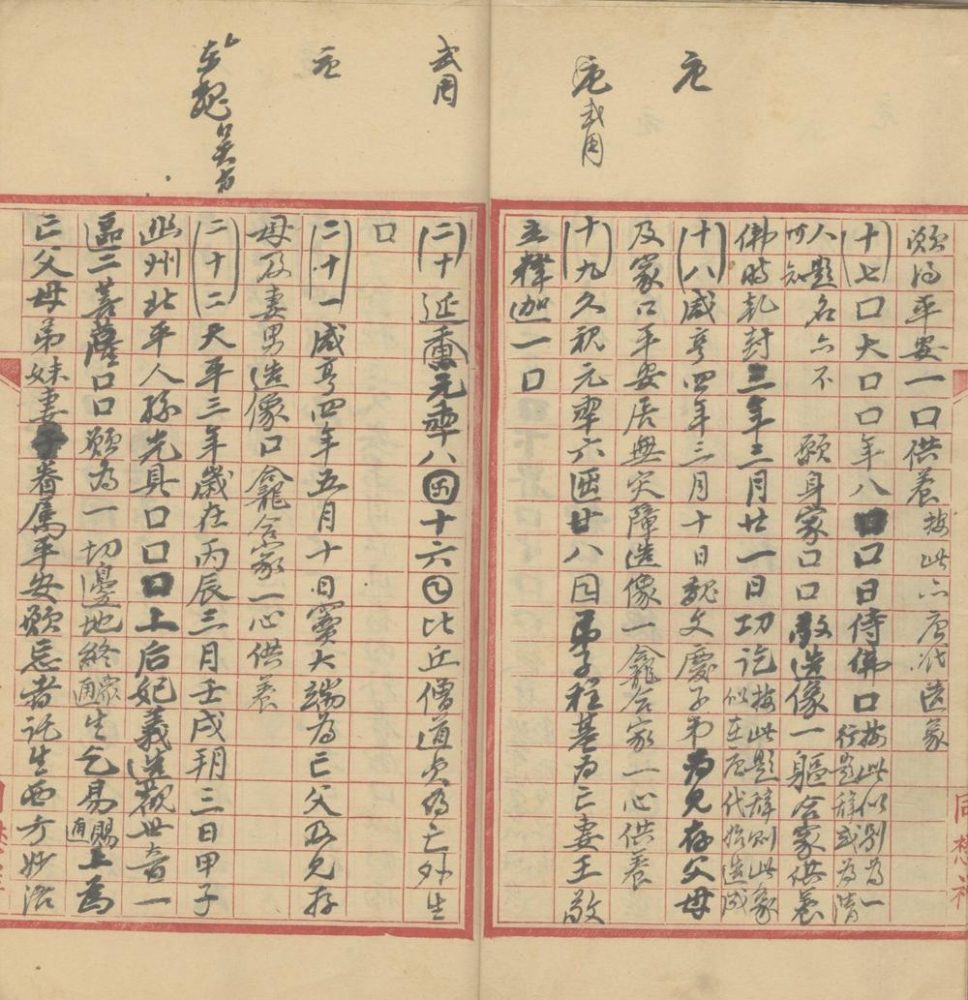 唐
唐 武周
願得平安一口供養 按此亦唐代造象
(十七)口大口口年八口口日侍佛口 按此似别為一行題辭或為清
人題名亦不可知 願身家口口敬造像一軀合家供養
佛時乾封三年三月廿一日功訖 按此題辭則此象似在唐代始造成
(十八)咸亨四年三月十日魏文慶子弟為見存父母
及家口平安居無災障造像一龕合家一心供養
(十九)久視元年六匦廿八囙弟子程基為亡妻王敬
立釋迦一口
同懋祥
武周
唐
東魏 吳
(二十)延載元年八囝十六日比丘僧道貞為亡外生
口
(二十一)咸亨四年五月十日竇大端為亡父及見存
母及妻男造像口龕合家一心供養
(二十二)天平三年歲在丙辰三月壬戌朔三日甲子
幽州北平人孫光具口口口上后妃義造觀世音一
區二菩薩口口願為一切邊地終 眾生乞易 上為
亡父母弟妹妻子眷属平安願忘者託生西方妙洛